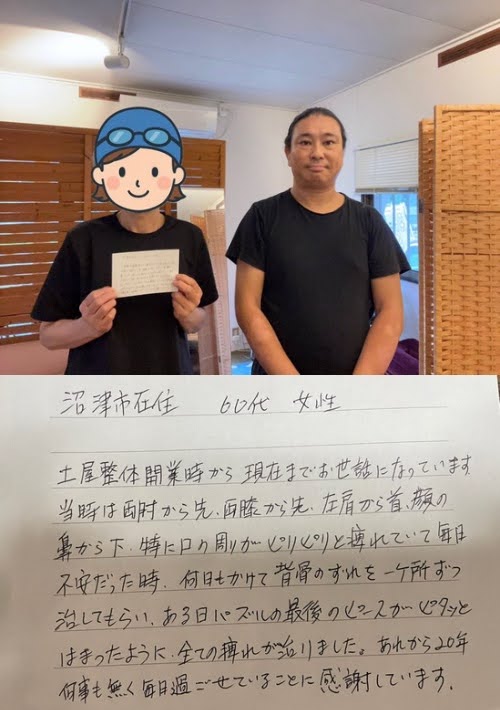 沼津市在住　60代　女性
土屋整体開業時から現在までお世話になっています
当時は両肘から先、両膝から先、左肩から首、顔の
鼻から下、特に口の周りがピリピリと痺れていて毎日
不安だった時、何日もかけて背骨のずれを一ケ所ずつ
治してもらい、ある日パズルの最後のピースがピタッと
はまったように、全ての痺れが治りました。あれから20年
何事も無く毎日過ごせていることに感謝しています。